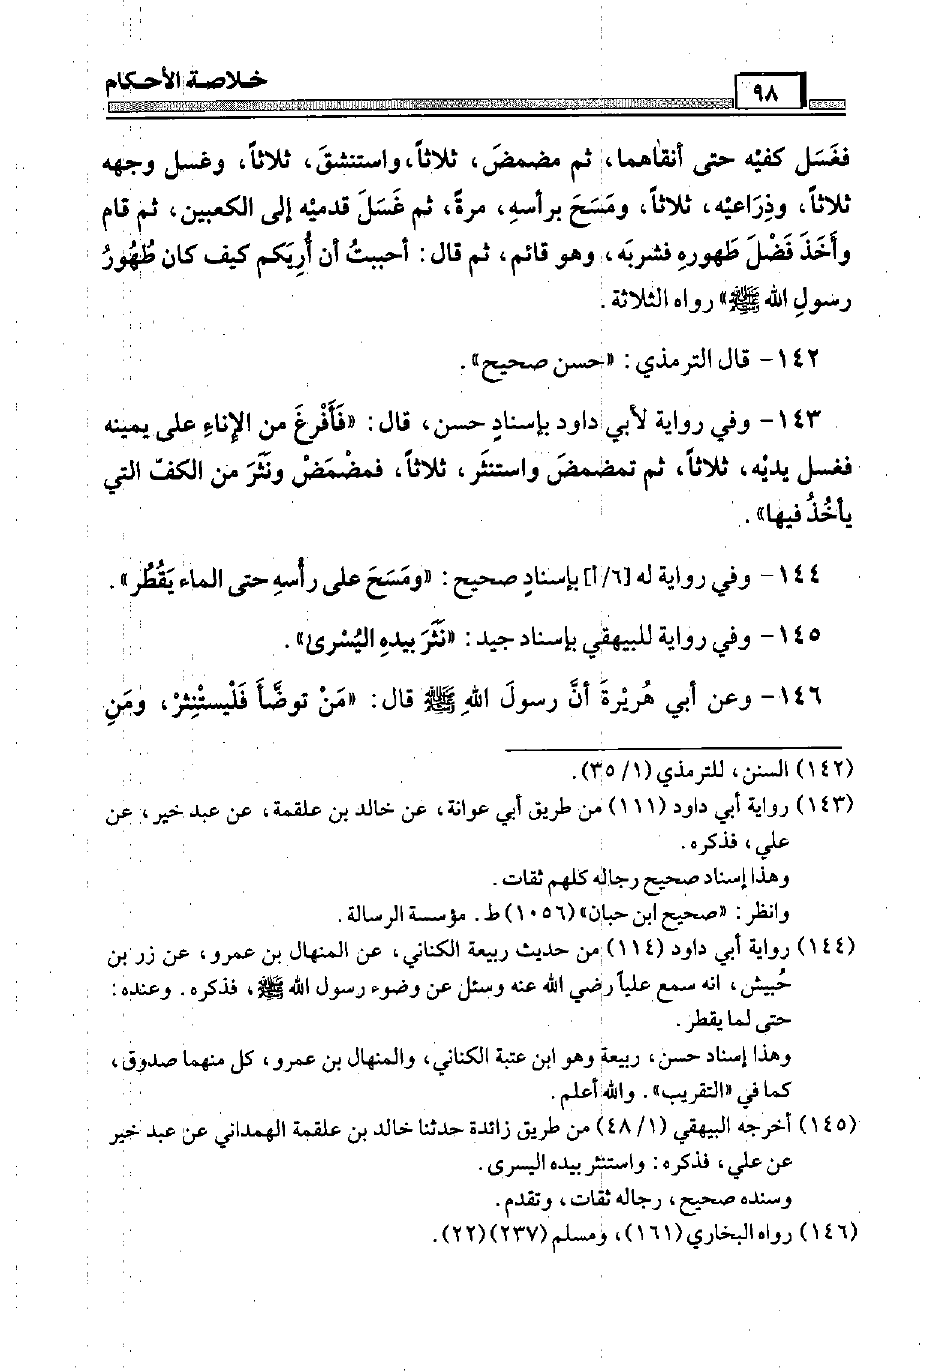 خلاصة الأحكام
٩٨
فغَسَل كفيْه حتى أنقاهما، ثم مضمضَ، ثلاثاً، واستنشقَ، ثلاثاً، وغسل وجهه
ثلاثاً، وذِرَاعيْه، ثلاثاً، ومَسَحَ برأسهِ، مرةً، ثم غَسَلَ قدميْه إلى الكعبين، ثم قام
وأَخَذَ فَضْلَ طَهورهِ فشربَه، وهو قائم، ثم قال: أحببتُ أن أُرِيَكم كيف كان طُهُورُ
رسولِ الله ﷺ» رواه الثلاثة.
١٤٢- قال الترمذي: «حسن صحيح».
١٤٣- وفي رواية لأبي داود بإسنادٍ حسن، قال: «فَأَفْرغَ من الإناءِ على يمينه
فغسل يديْه، ثلاثاً، ثم تمضمضَ واستنثَر، ثلاثاً، فمضْمَضَ ونَثَرَ من الكفّ التي
يأخُذُ فيها».
١٤٤- وفي رواية له [٦/أ] بإسنادٍ صحيح: «ومَسَحَ على رأسهِ حتى الماء يَقْطُر».
١٤٥- وفي رواية للبيهقي بإسناد جيد: «نَثَرَ بيدهِ اليُسْرىٰ».
١٤٦- وعن أبي هُريْرةَ أنَّ رسولَ اللهِ ﷺ قال: «مَنْ توضَّأَ فَلْيستْنِثرْ، ومَنِ
(١٤٢) السنن، للترمذي (١/ ٣٥).
(١٤٣) رواية أبي داود (١١١) من طريق أبي عوانة، عن خالد بن علقمة، عن عبد خير، عن
علي، فذكره.
وهذا إسناد صحيح رجاله كلهم ثقات.
وانظر: «صحيح ابن حبان» (١٠٥٦) ط. مؤسسة الرسالة.
(١٤٤) رواية أبي داود (١١٤) من حديث ربيعة الكناني، عن المنهال بن عمرو، عن زر بن
حُبيش، انه سمع علياً رضي الله عنه وسئل عن وضوء رسول الله ﷺ، فذكره. وعنده:
حتى لما يقطر.
وهذا إسناد حسن، ربيعة وهو ابن عتبة الكناني، والمنهال بن عمرو، كل منهما صدوق،
كما في «التقريب». والله أعلم.
(١٤٥) أخرجه البيهقي (١/ ٤٨) من طريق زائدة حدثنا خالد بن علقمة الهمداني عن عبد خير
عن علي، فذكره: واستنثر بيده اليسرى.
وسنده صحيح، رجاله ثقات، وتقدم.
(١٤٦) رواه البخاري (١٦١)، ومسلم (٢٣٧)(٢٢).